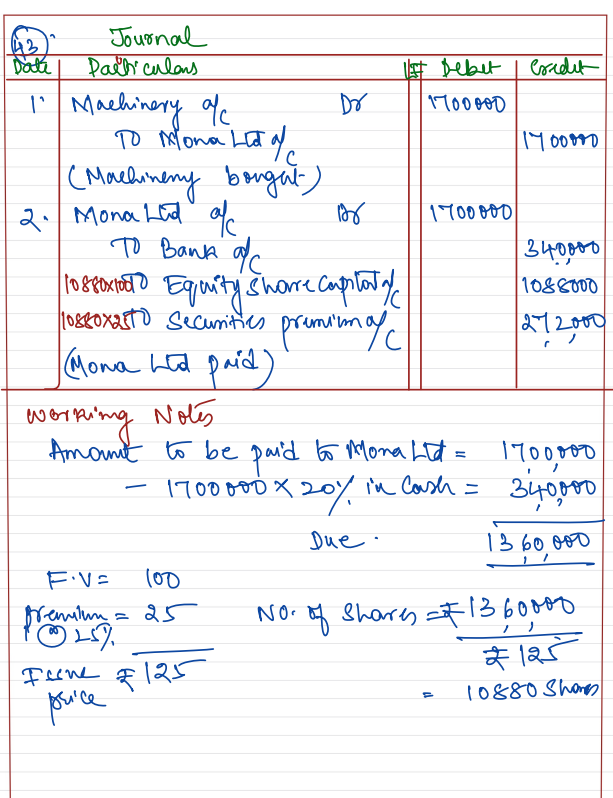 43.
Journal
Date Particulars LF Debit Credit
1. Machinery a/c Dr 1700000
To Mona Ltd a/c 1700000
(Machinery bought)
2. Mona Ltd a/c Dr 1700000
To Bank a/c 340,000
10880x100 To Equity share capital a/c 1088000
10880x25 To Securities premium a/c 272,000
(Mona Ltd paid)
Working Notes
Amount to be paid to Mona Ltd = 17,00,000
- 1700000 x 20% in Cash = 340,000
Due. 13,60,000
F.V = 100
premium = 25 No. of Shares = ₹ 13,60,000
@ 25% ₹ 125
Issue price ₹ 125 = 10880 Shares